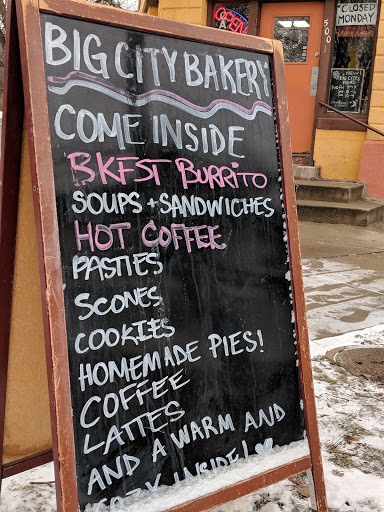 OPEN
CLOSED
MONDAY
500
BIG CITY BAKERY
COME INSIDE
BKFST BURRITO
SOUPS + SANDWICHES
HOT COFFEE
PASTIES
SCONES
COOKIES
HOMEMADE PIES!
COFFEE
LATTES
AND A WARM AND
COZY INSIDE!